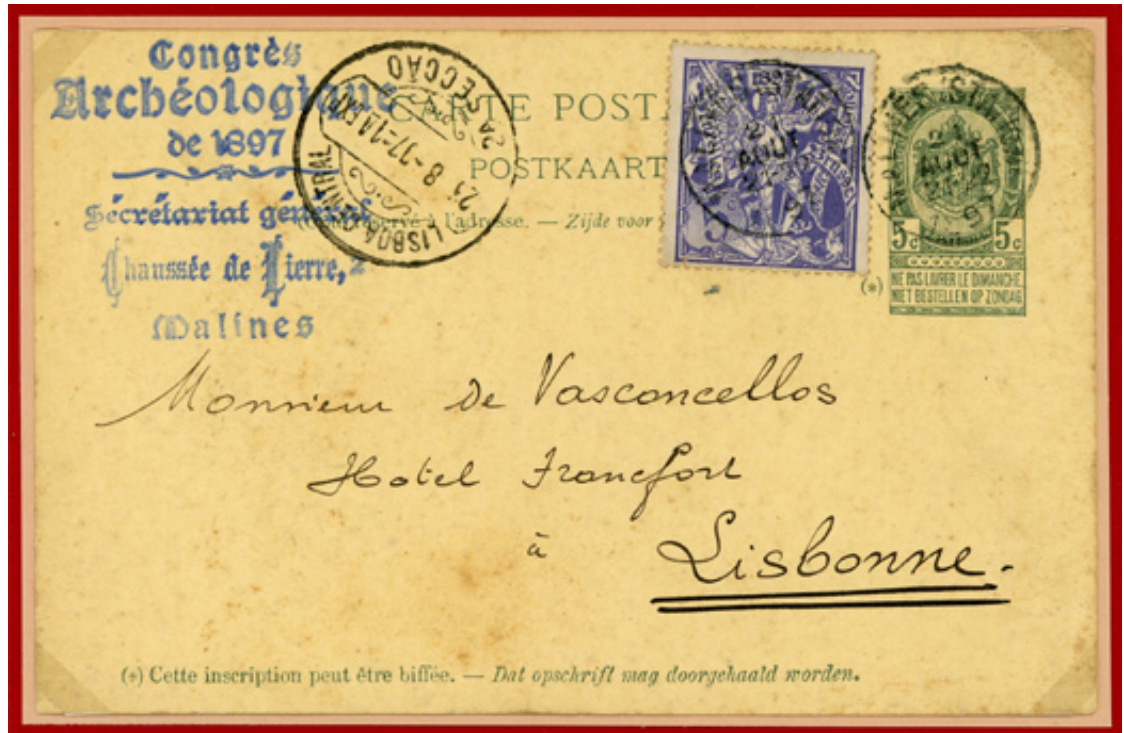 Congrès
Archéologique
de 1897
Sécrétariat général
Chaussée de Lierre, 2
Malines
LISBOA CENTRAL
2ª SECCÃO
CARTE POSTALE
POSTKAART
réservé à l'adresse. — Zijde voor
AOUT
MALINES (STATION)
21
AOUT
97
5c 5c
(*)
NE PAS LIVRER LE DIMANCHE
NIET BESTELLEN OP ZONDAG
Monsieur de Vasconcellos
Hotel Francfort
à
Lisbonne.
(*) Cette inscription peut être biffée. — Dat opschrift mag doorgehaald worden.